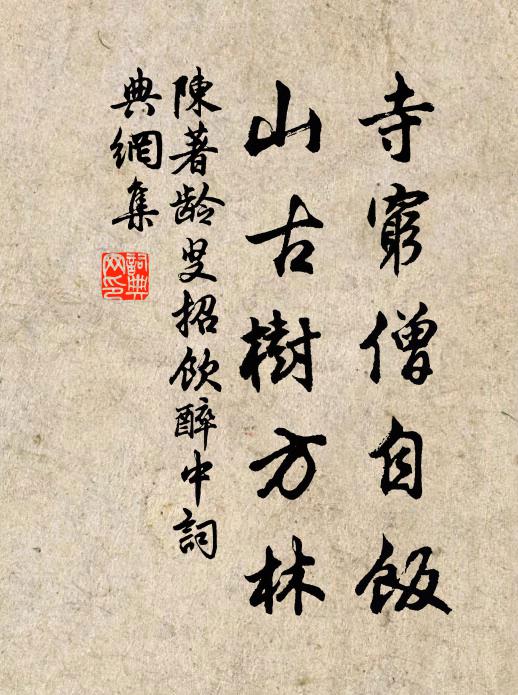 寺窮僧自飯
山古樹方林
陳著齡叟招飲醉中詞
典網集
詞典網印